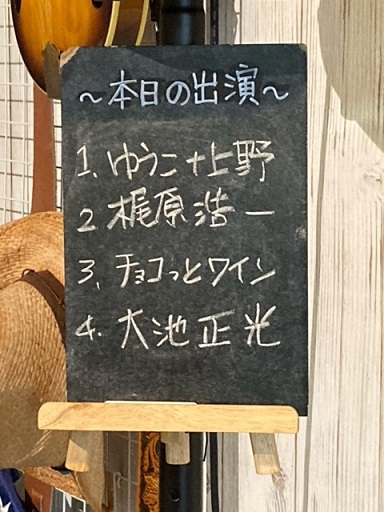 ~本日の出演~
1、ゆうこ+上野
2 梶原浩一
3、チョコっとワイン
4. 大池正光